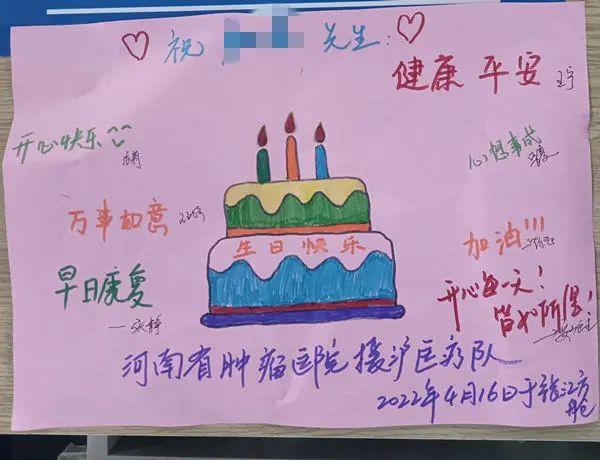 祝 先生:
健康 平安
王宁
开心快乐
心想事成
万事如意
加油!!!
早日康复
—张静
开心每一天!
皆如所愿!
生日快乐
河南省肿瘤医院援沪医疗队
2022年4月16日于张江方舱